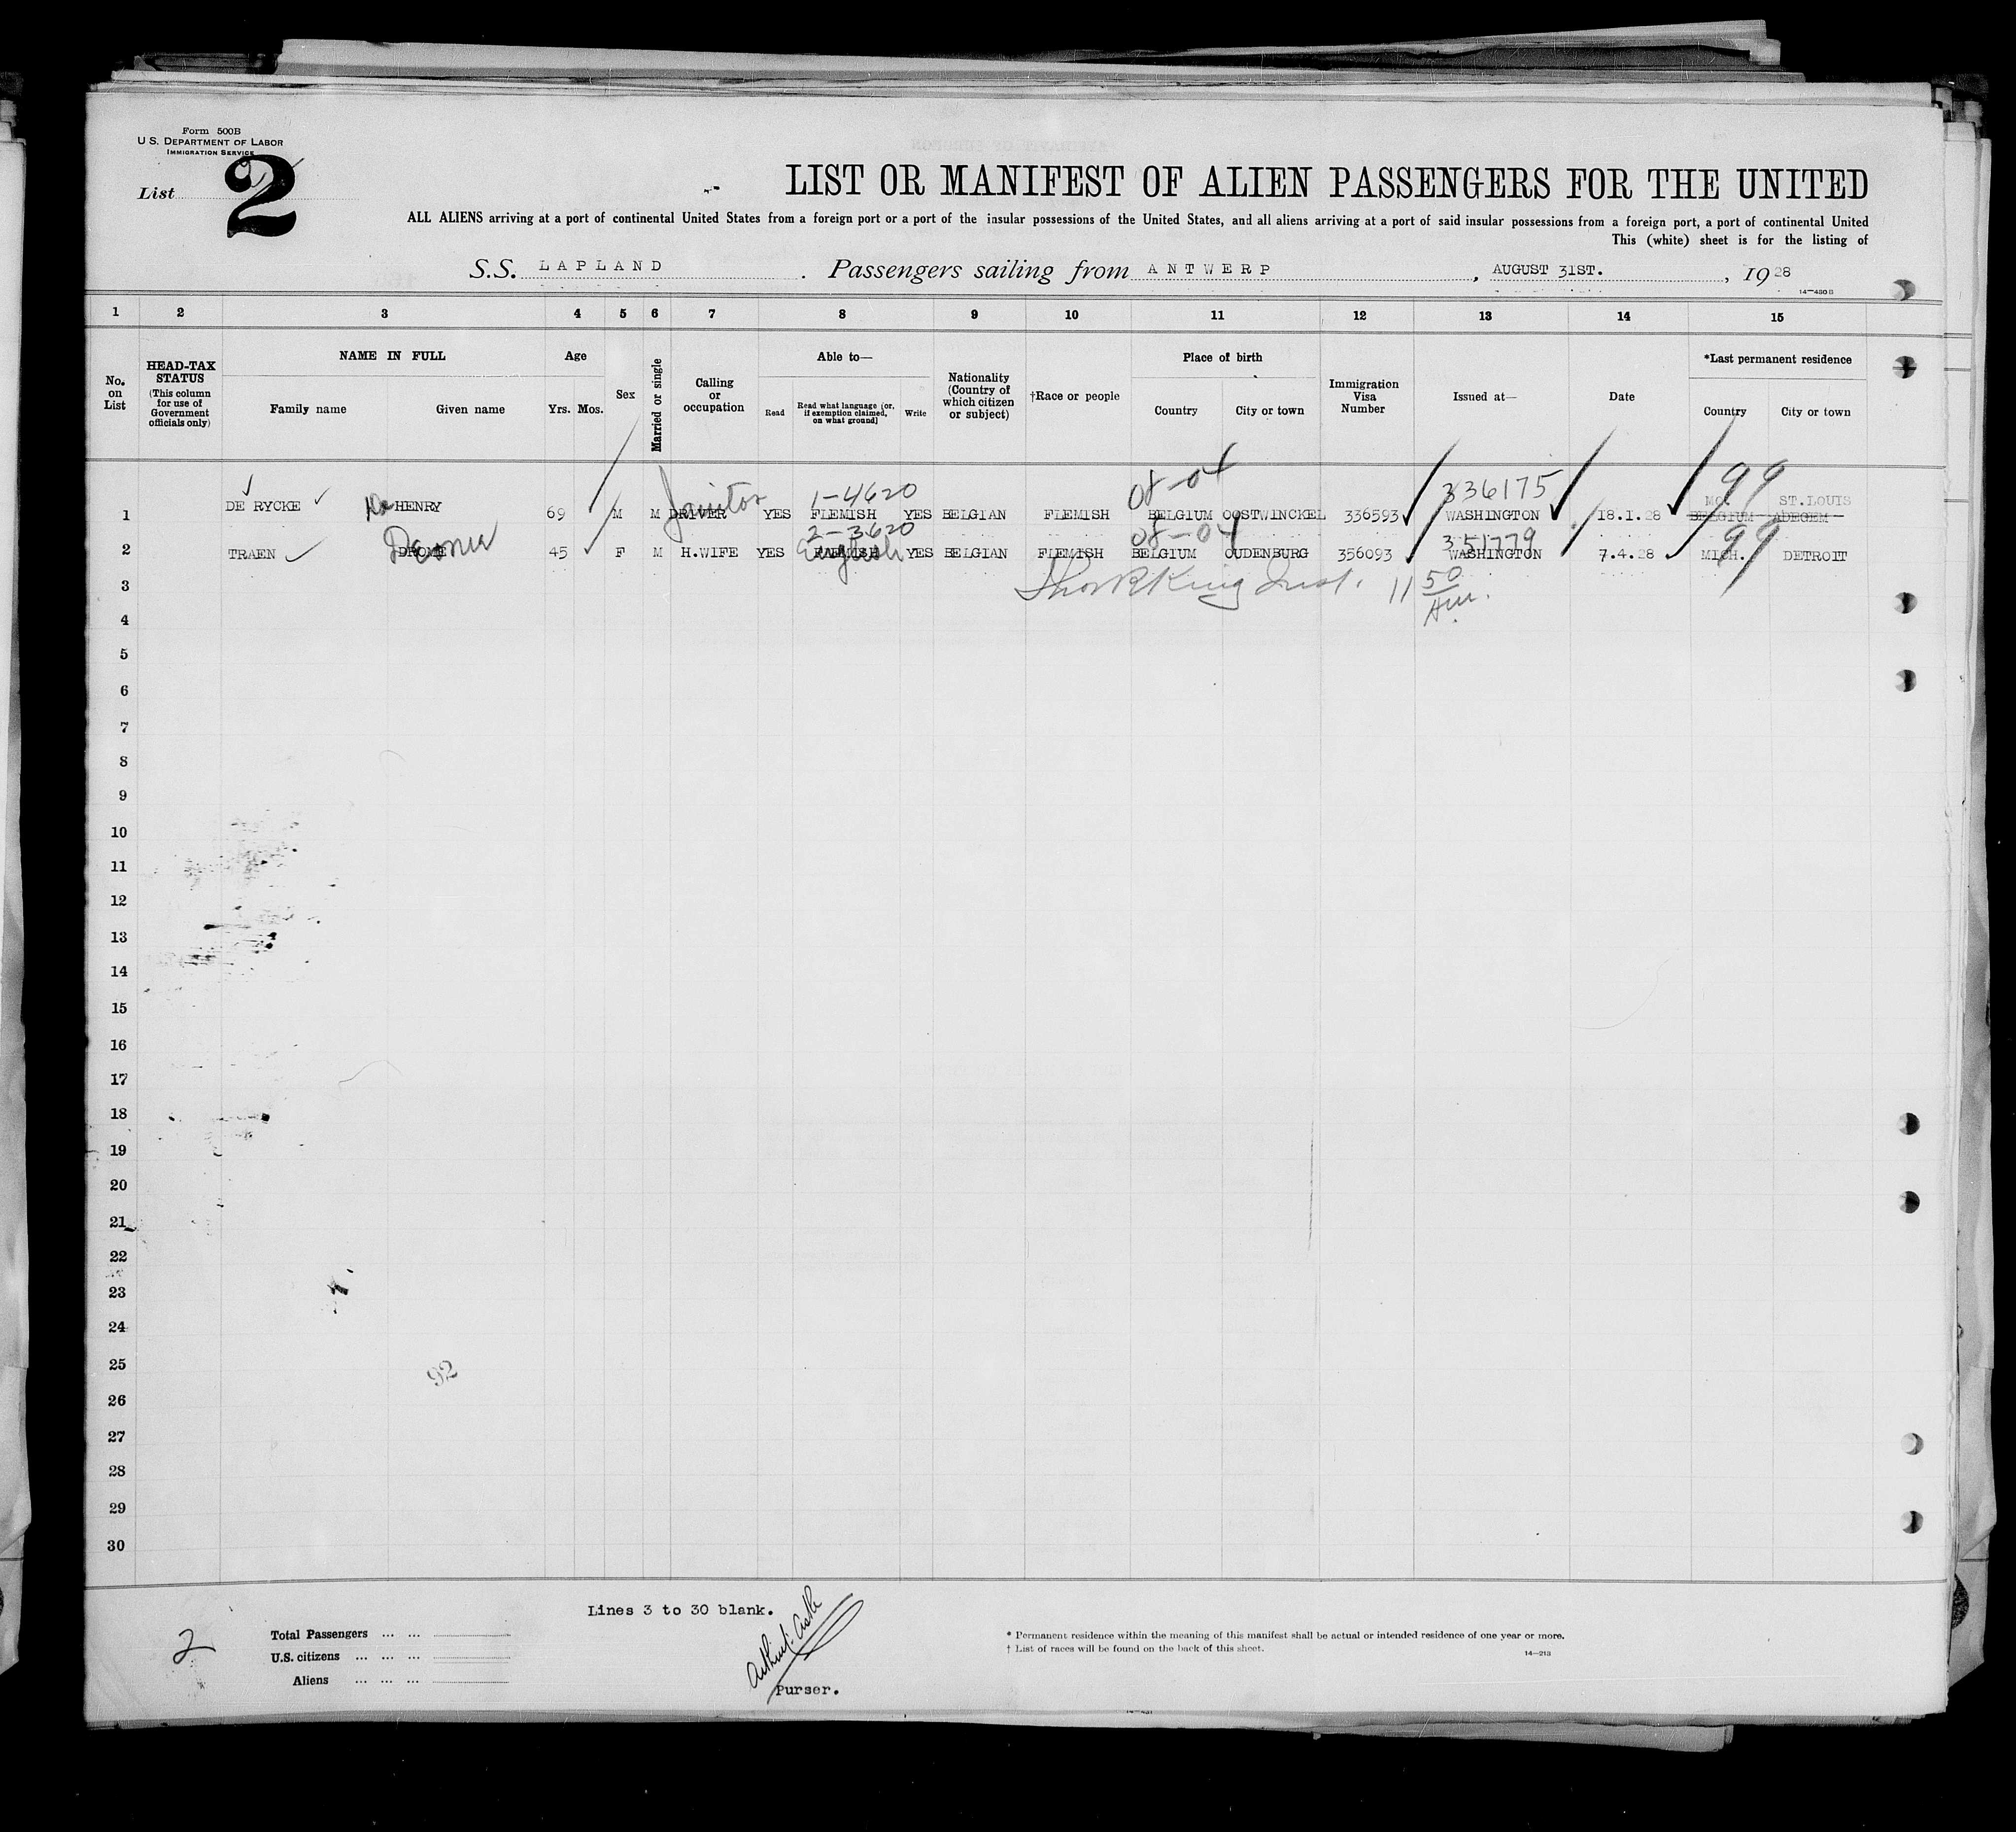 Form 500B
U S. DEPARTMENT OF LABOR
IMMIGRATION SERVICE
List 2
LIST OR MANIFEST OF ALIEN PASSENGERS FOR THE UNITED
ALL ALIENS arriving at a port of continental United States from a foreign port or a port of the insular possessions of the United States, and all aliens arriving at a port of said insular possessions from a foreign port, a port of continental United
This (white) sheet is for the listing of
S.S. LAPLAND. Passengers sailing from ANTWERP, AUGUST 31ST., 1928
14—480 B
1 2 3 4 5 6 7 8 9 10 11 12 13 14 15
No. on List
HEAD-TAX STATUS (This column for use of Government officials only)
NAME IN FULL
Family name Given name
Age
Yrs. Mos.
Sex
Married or single
Calling or occupation
Able to—
Read Read what language [or, if exemption claimed, on what ground] Write
Nationality (Country of which citizen or subject)
†Race or people
Place of birth
Country City or town
Immigration Visa Number
Issued at—
Date
*Last permanent residence
Country City or town
Janitor 1-4620 08-04 336175 99
MO. ST.LOUIS
1 DE RYCKE HENRY 69 M M DRIVER YES FLEMISH YES BELGIAN FLEMISH BELGIUM OOSTWINCKEL 336593 WASHINGTON 18.I.28 BELGIUM ADEGEM
2-3620 08-04 351779 99
2 TRAEN 45 F M H.WIFE YES English YES BELGIAN FLEMISH BELGIUM OUDENBURG 356093 WASHINGTON 7.4.28 MICH. DETROIT
3
King Insp. 11 50 AM.
4
5
6
7
8
9
10
11
12
13
14
15
16
17
18
19
20
21
22
23
24
25
92
26
27
28
29
30
Lines 3 to 30 blank.
2
Total Passengers ... ...
U.S. citizens ... ... ...
Aliens ... ... ...
Purser.
* Permanent residence within the meaning of this manifest shall be actual or intended residence of one year or more.
† List of races will be found on the back of this sheet.
14—213